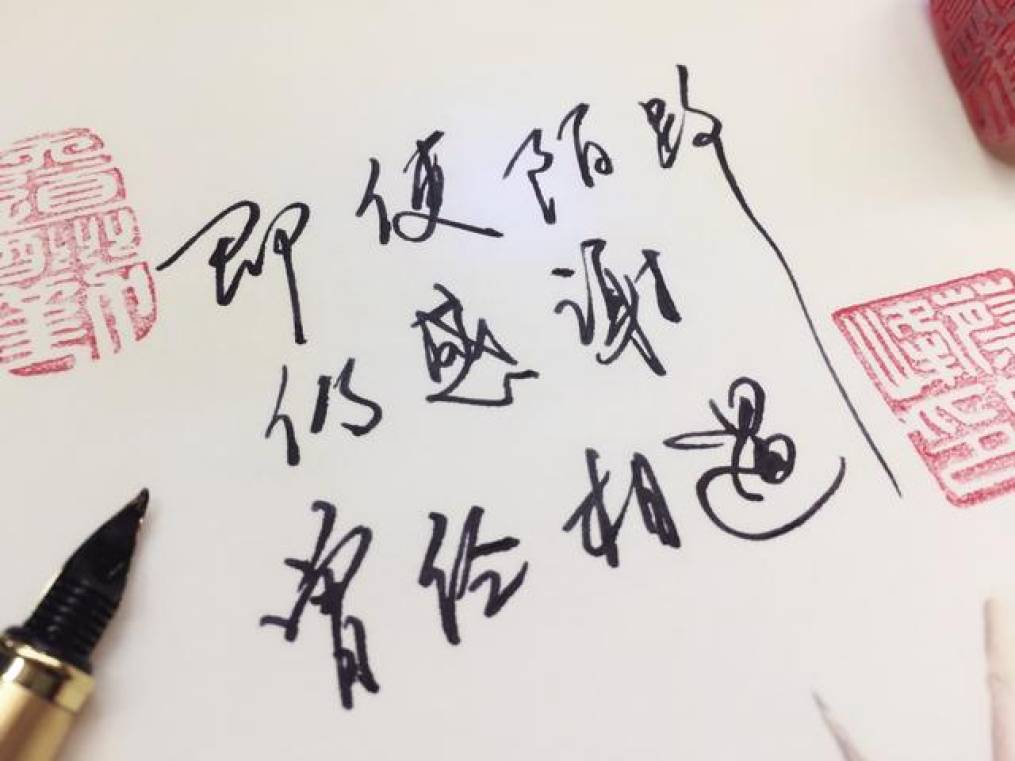 即便陌路
仍感谢
曾经相遇